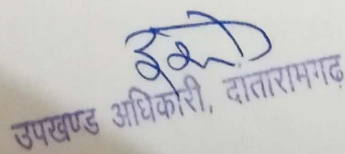 उपखण्ड अधिकारी, दातारामगढ़